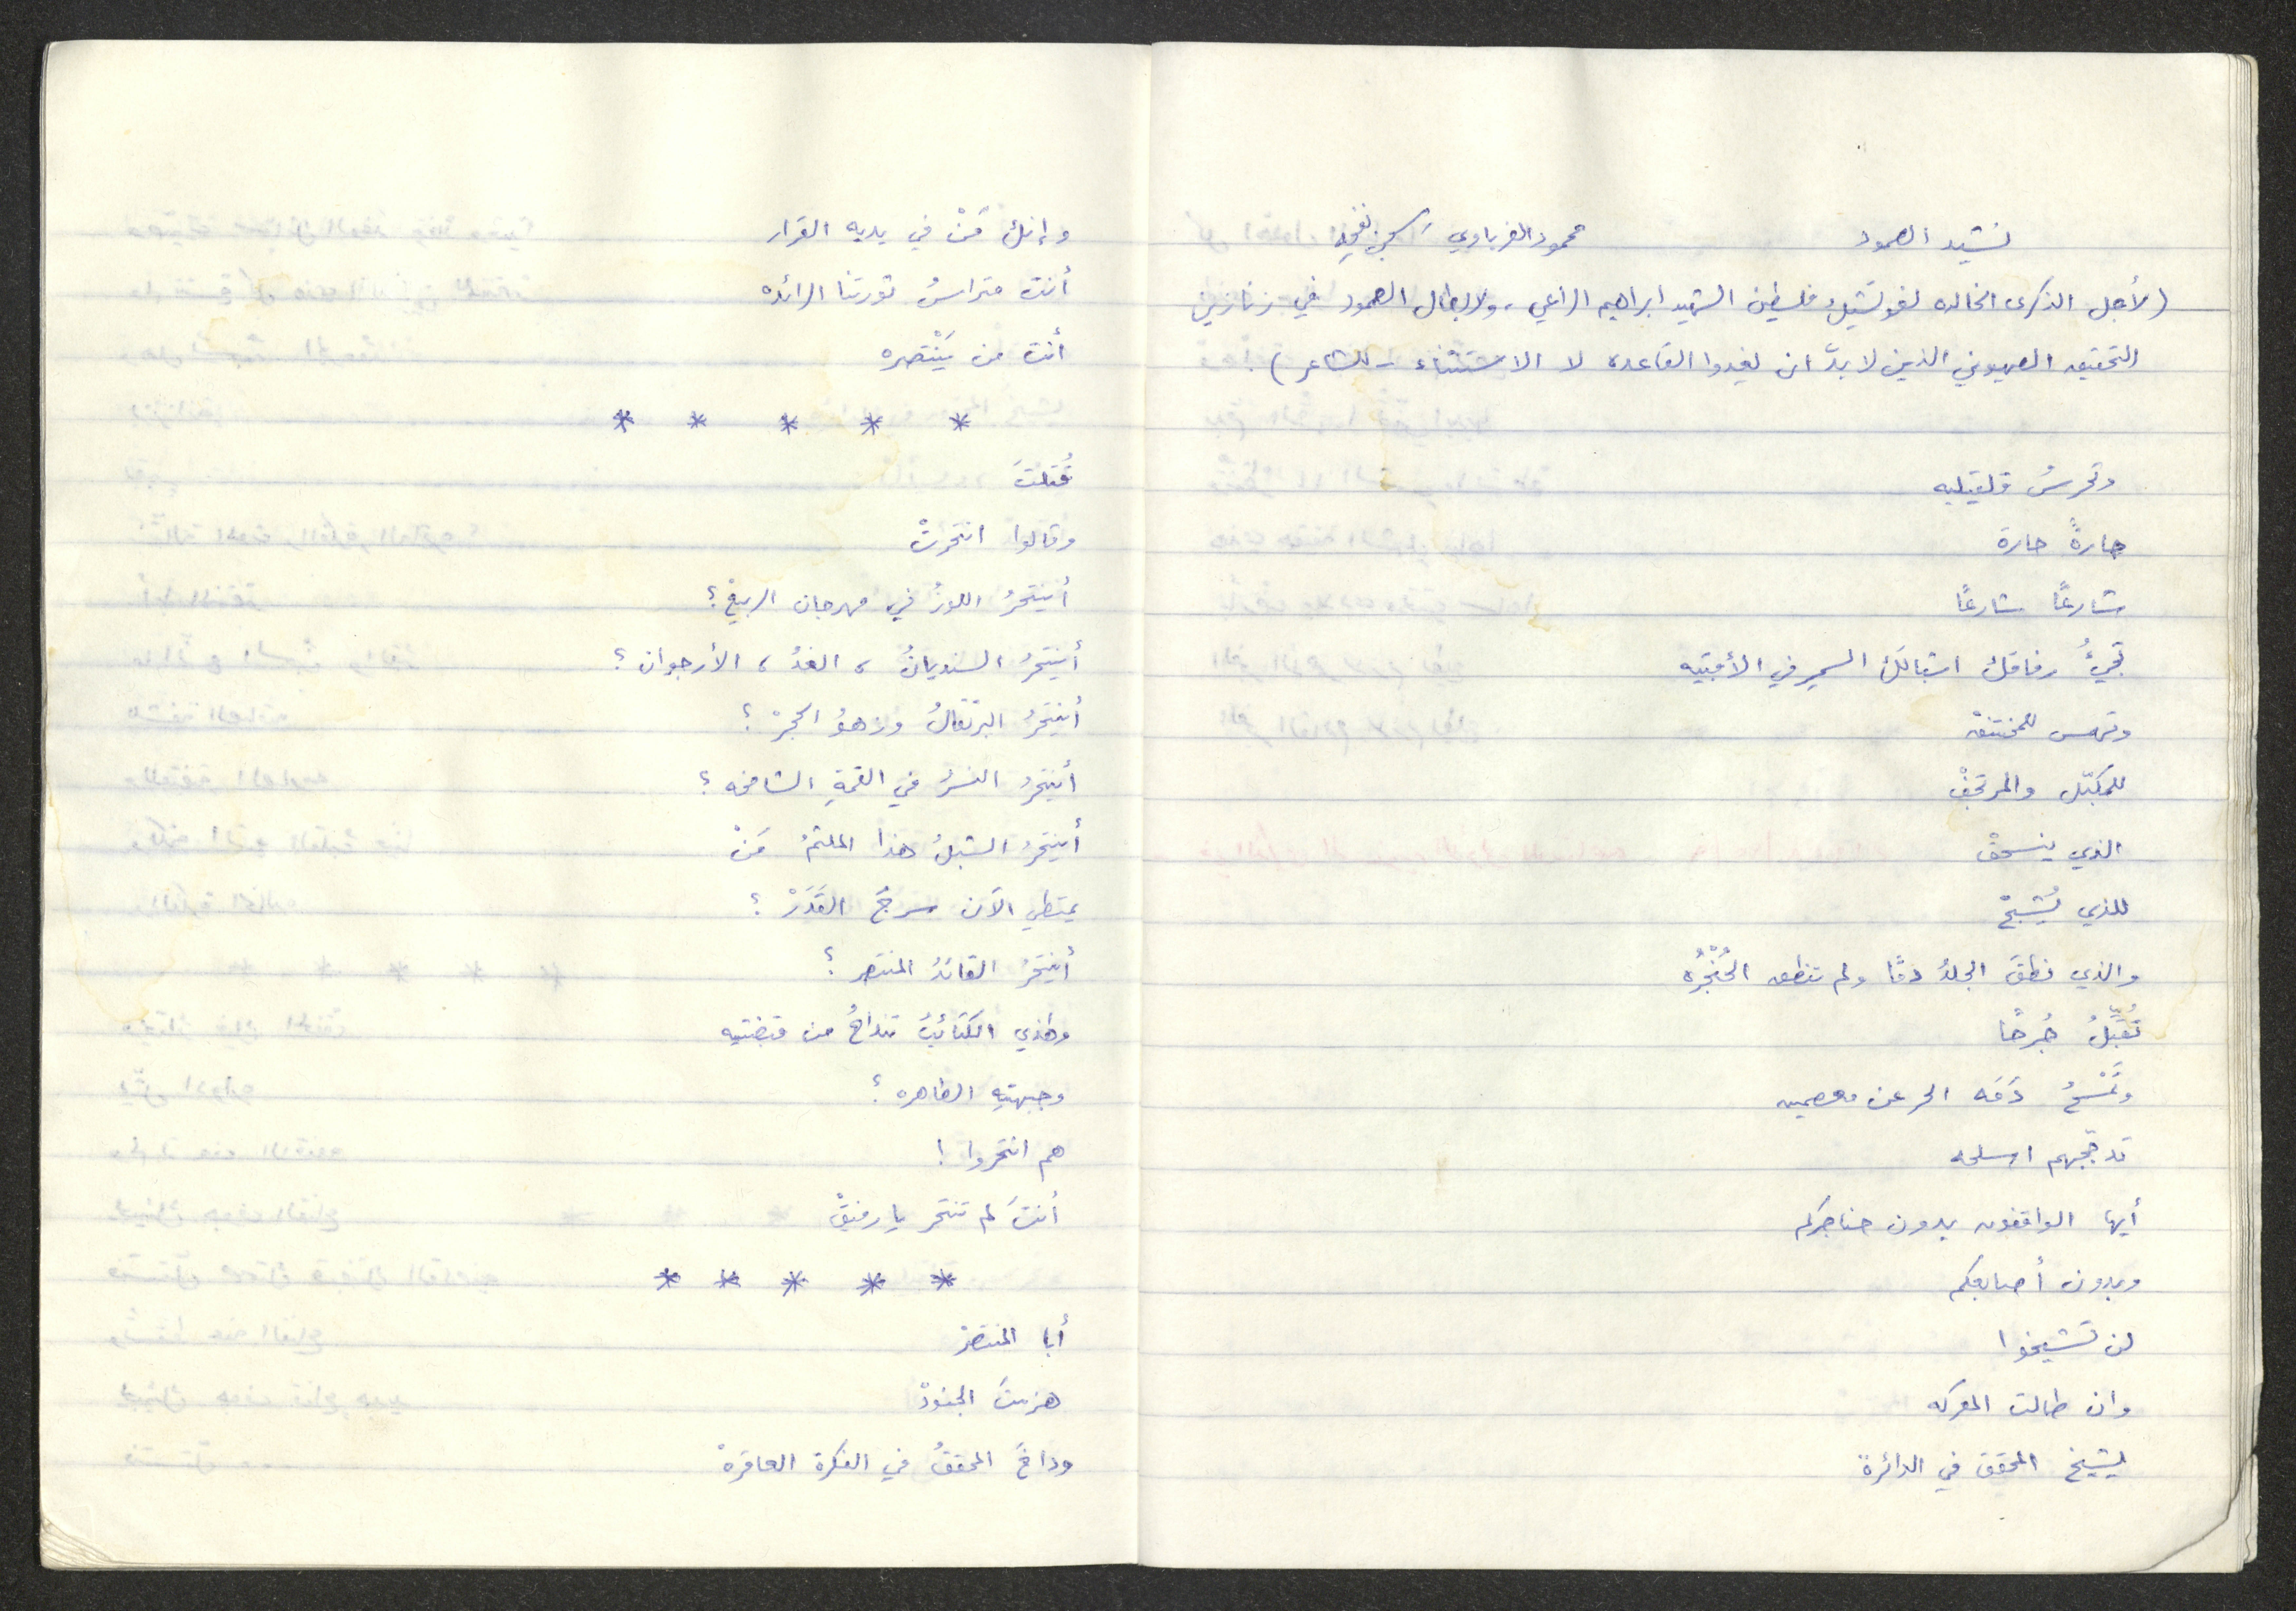 نشيد الصمود محمود الغرباوي / سجن نفحه
(لأجل الذكرى الخالده لفوتشيك فلسطين الشهيد ابراهيم الراعي، ولابطال الصمود في زنازين
التحقيق الصهيوني الذين لا بدّ ان يغدوا القاعده لا الاستثناء - للشاعر)
وتحرسُ قلقيليه
حارةً حارة
شارعًا شارعًا
تجيءُ رفاقك اشبالك السمر في الأقبيه
وتهمس للمختنقْ
للمكبّل والمرتجفْ
الذي ينسحقْ
للذي يُشبحْ
والذي نطقَ الجلدُ دمًا ولم تنطق الحُنْجُرُه
تُقبِّلُ جُرحًا
وتَمْسَحُ دَمَه الحر عن معصميه
تدججهم اسلحه
أيها الواقفون بدون حناجركم
وبدون أصابعكم
لن تشيخوا
وان طالت المعركه
يشيخ المحقق في الدائرة
وإنك مَنْ في يديه القرار
أنت متراسُ ثورتنا الرائده
أنت من يَنْتصره
* * * * *
قُتلتَ
وقالوا انتحرتْ
أينتحرُ اللوزُ في مهرجان الربيعْ؟
أينتحرُ السنديانُ، الغدُ، الأرجوان؟
أينتحرُ البرتقالُ وزهوُ الحجرْ؟
أينتحرُ النسرُ في القمةِ الشامخه؟
أينتحرُ الشبلُ هذا الملثمُ مَنْ
يمتطي الآن سرجَ القَدَرْ؟
أينتحرُ القائدُ المنتصر؟
وهذي الكتائبُ تنداحُ من قبضتيه
وجبهتِهِ الطاهره؟
هم انتحروا!
أنتَ لم تنتحر يا رفيقْ
* * * * *
أبا المنتصرْ
هزمتَ الجنودْ
وداخَ المحققُ في الفكرة العاقرةْ